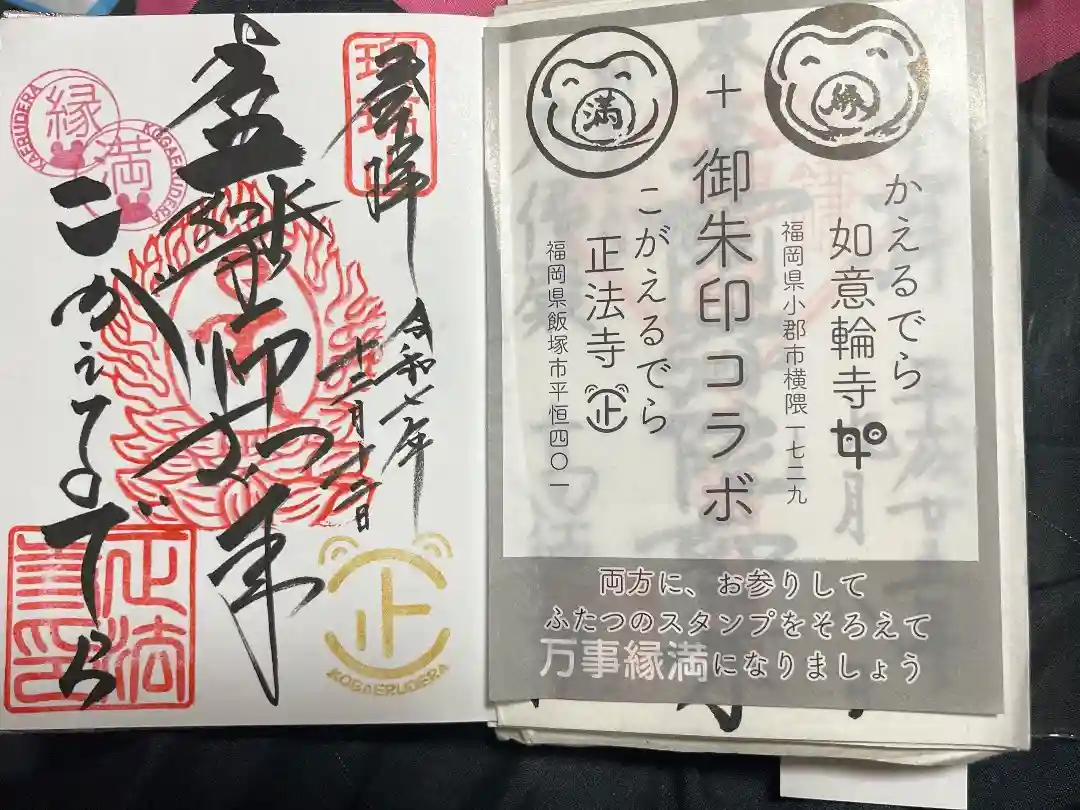 縁
かえるでら
如意輪寺
福岡県小郡市横隈一七二九
満
+
御朱印コラボ
こがえるでら
正法寺 正
福岡県飯塚市平恒四〇一
両方に、お参りして
ふたつのスタンプをそろえて
万事縁満になりましょう
奉拝
令和七年
十二月十二日
薬師如来
こがえるでら
縁
KAERUDERA
満
KOGAERUDERA
正
KOGAERUDERA
正法